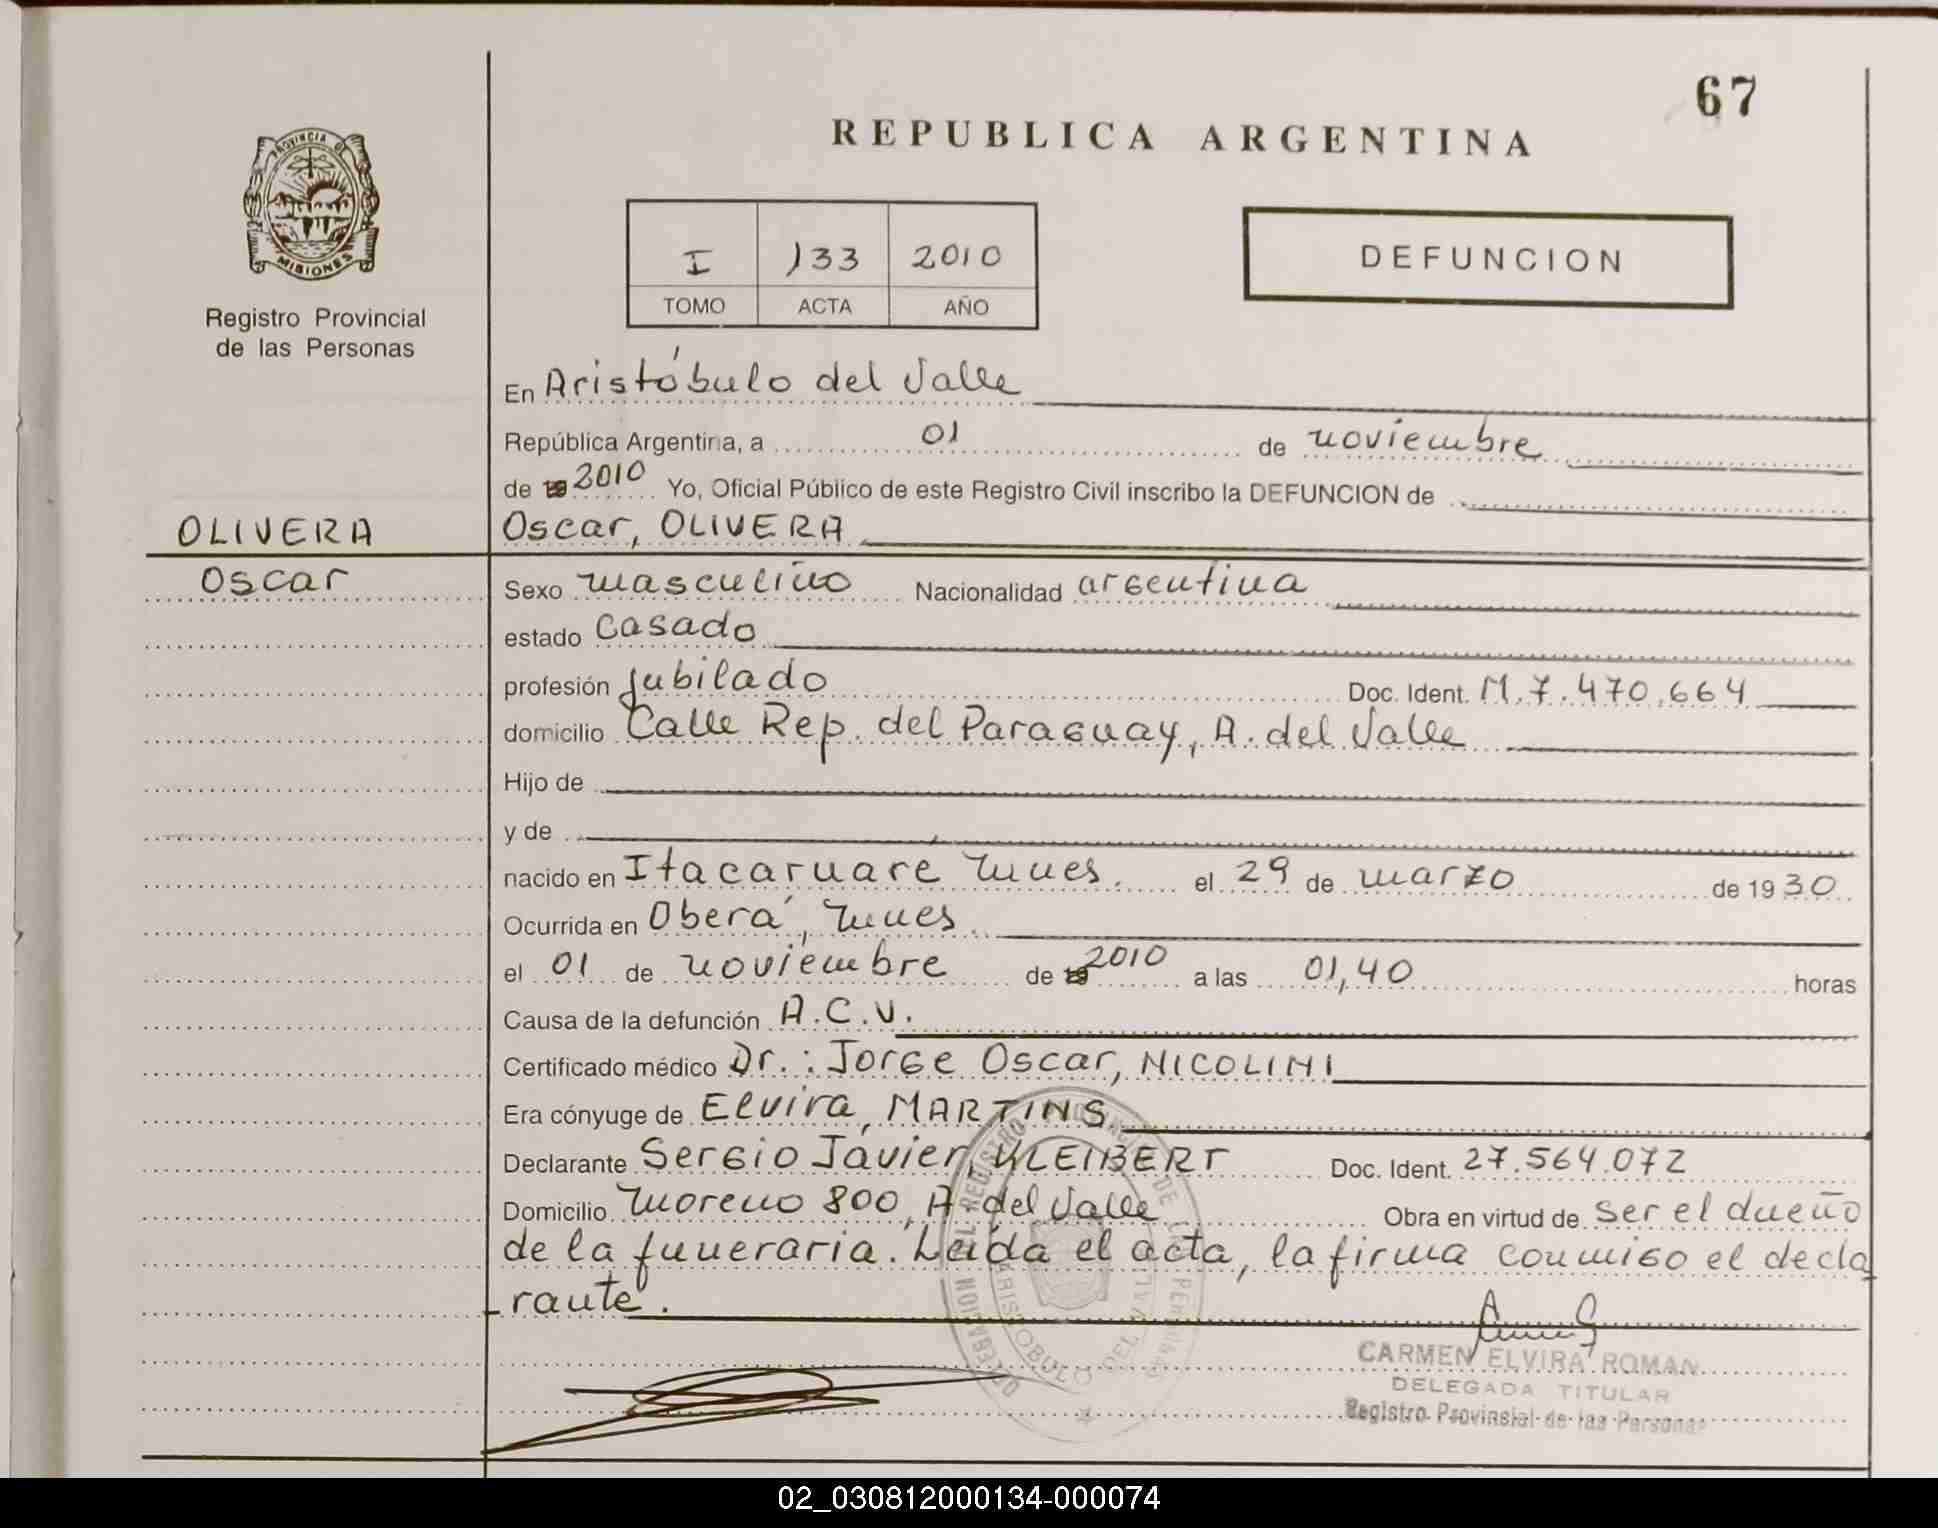 67
REPUBLICA ARGENTINA
PROVINCIA DE
MISIONES
Registro Provincial
de las Personas
I 133 2010
TOMO ACTA AÑO
DEFUNCION
En Aristóbulo del Valle
República Argentina, a 01 de noviembre
de 19 2010 Yo, Oficial Público de este Registro Civil inscribo la DEFUNCION de
OLIVERA
Oscar, OLIVERA
Oscar
Sexo masculino Nacionalidad argentina
estado Casado
profesión Jubilado Doc. Ident. M.7.470.664
domicilio Calle Rep. del Paraguay, A. del Valle
Hijo de
y de
nacido en Itacaruare Mnes. el 29 de marzo de 1930
Ocurrida en Oberá, Mnes.
el 01 de noviembre de 19 2010 a las 01,40 horas
Causa de la defunción A.C.V.
Certificado médico Dr.: Jorge Oscar, NICOLINI
Era cónyuge de Elvira, MARTINS
Declarante Sergio Javier, KLEIBERT Doc. Ident. 27.564.072
Domicilio Moreno 800, A. del Valle Obra en virtud de ser el dueño
de la funeraria. Leída el acta, la firma conmigo el decla
rante.
CARMEN ELVIRA ROMAN
DELEGADA TITULAR
Registro Provincial de las Personas
DELEGACION DEL REGISTRO PROVINCIAL DE LAS PERSONAS
ARISTOBULO DEL VALLE
02_030812000134-000074